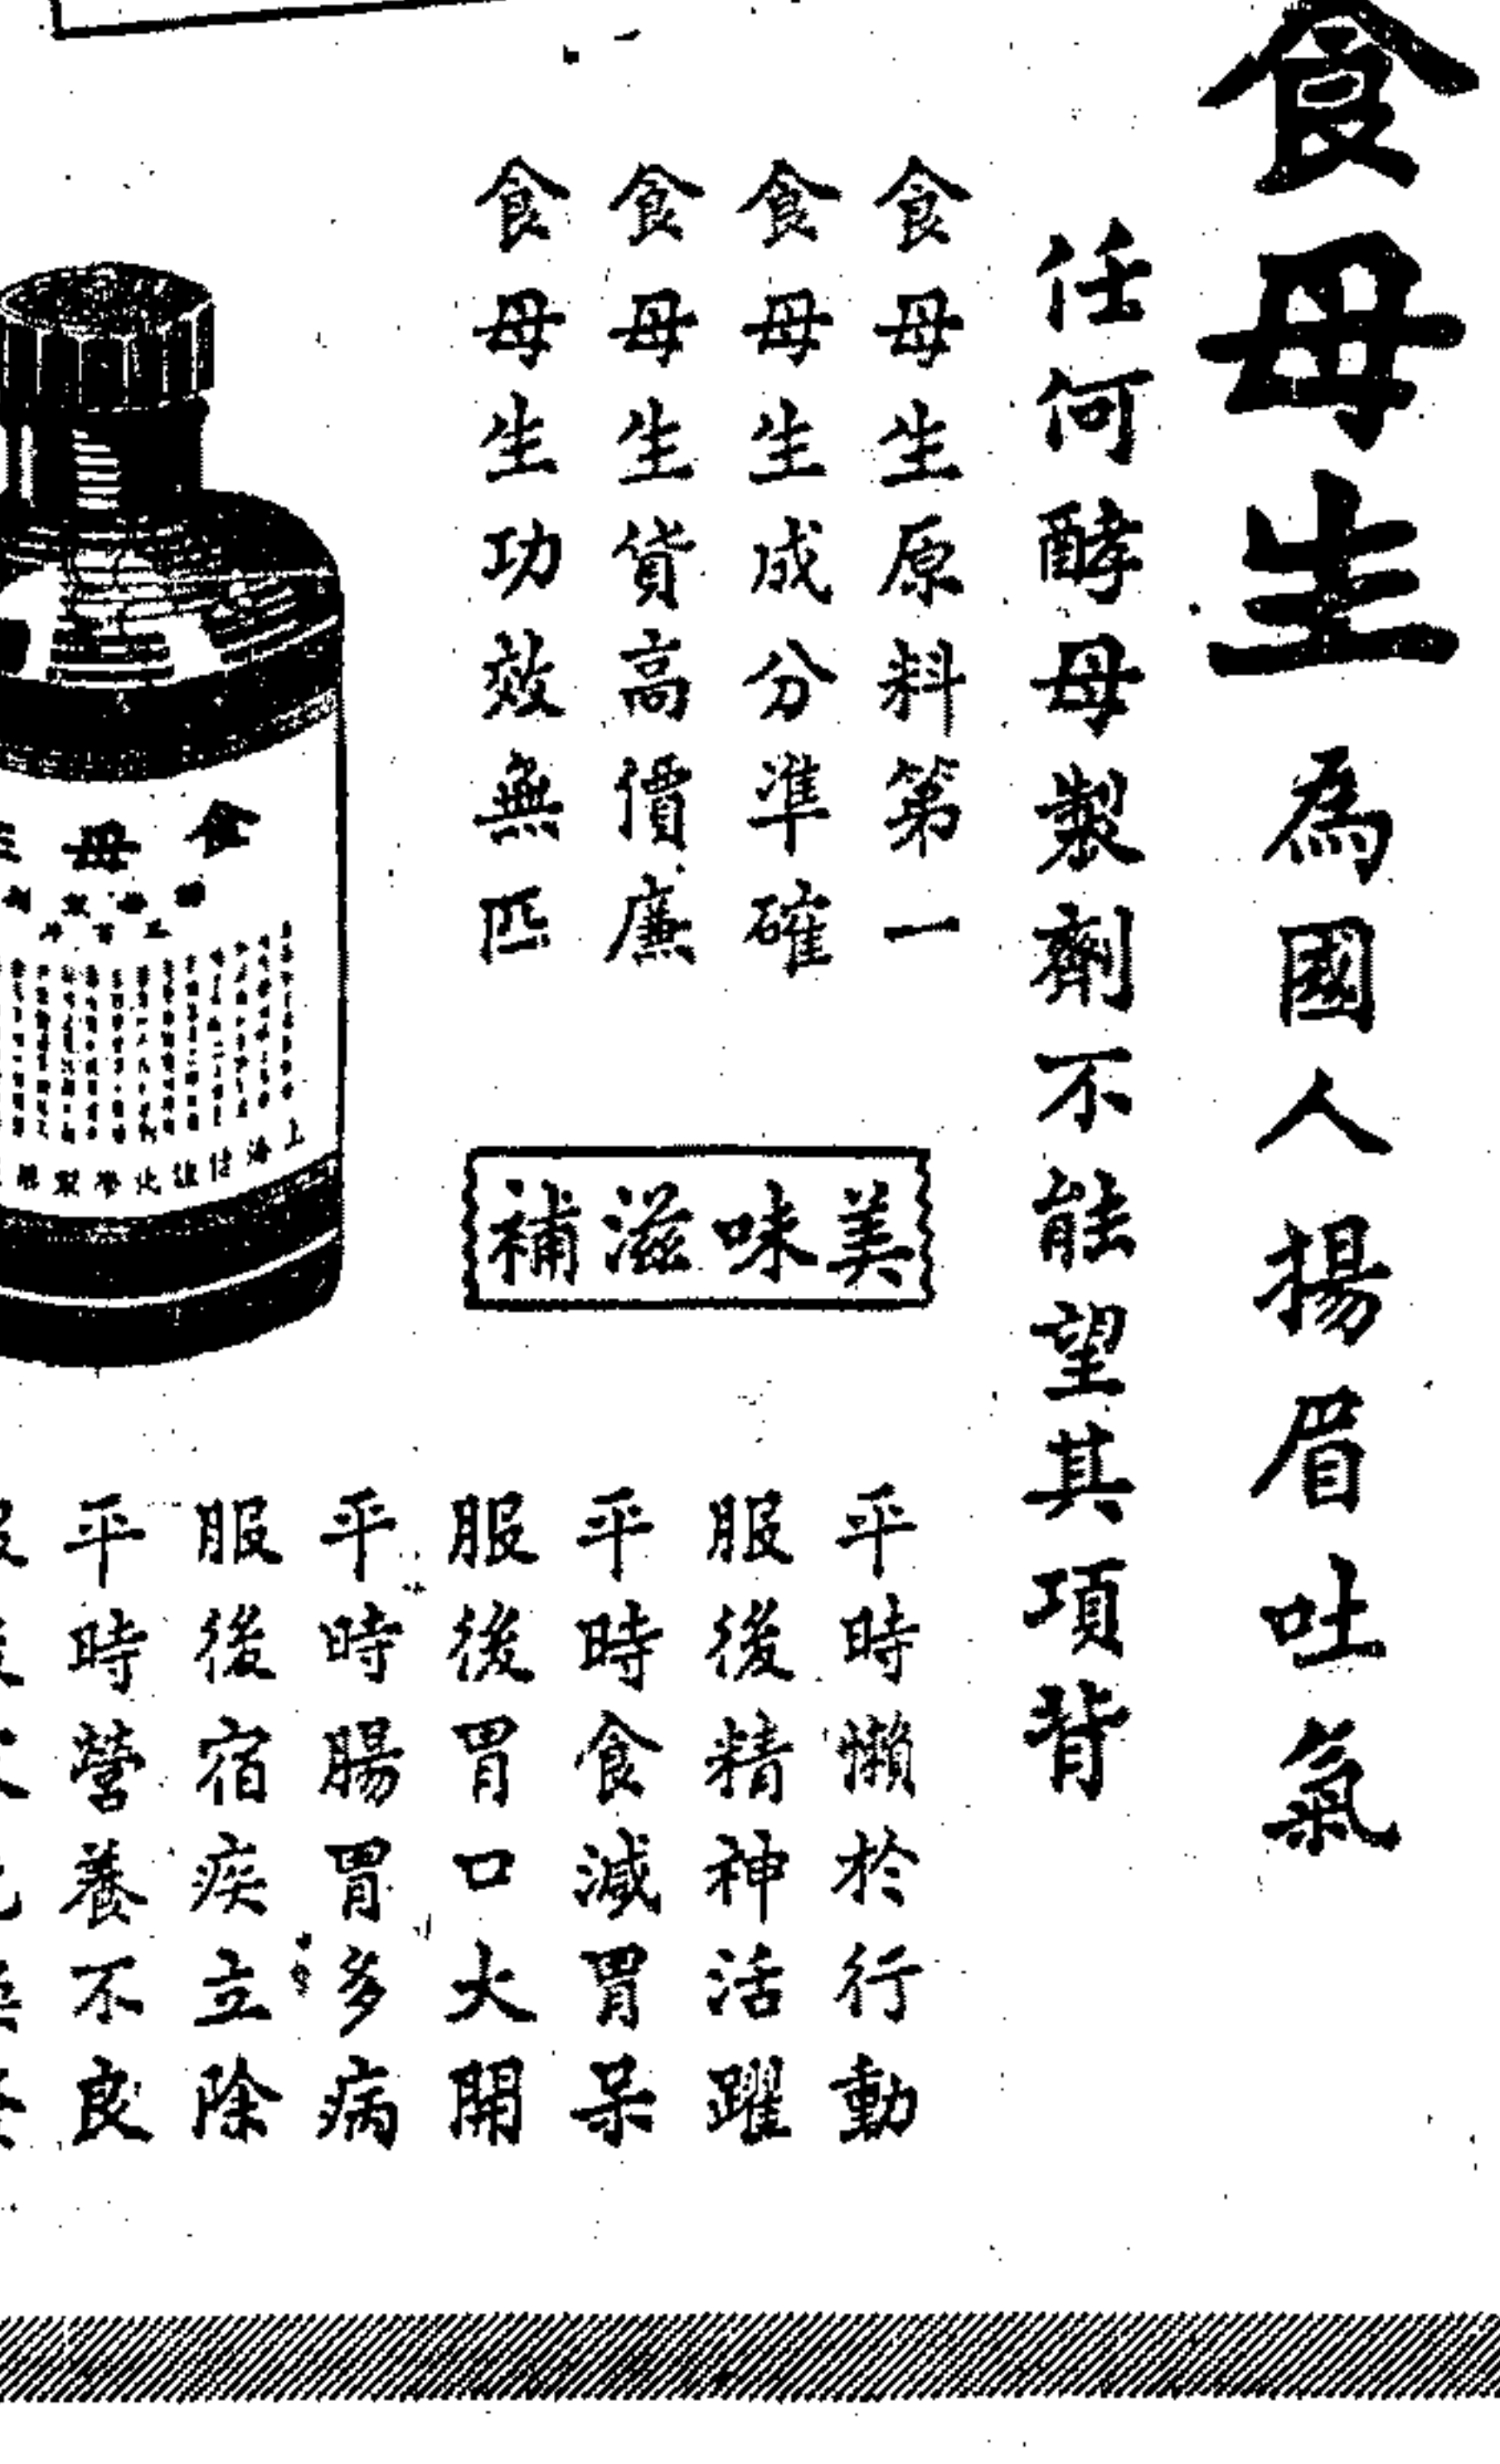 食母生為國人揚眉吐氣
任何酵母製劑不能望其項背
食母生原料第一
食母生成分準確
食母生貨高價廉
食母生功效無匹
美味滋補
平時懶於行動
服後精神活躍
平時食減胃呆
服後胃口大開
平時腸胃多病
服後宿疾立除
平時營養不良
食母